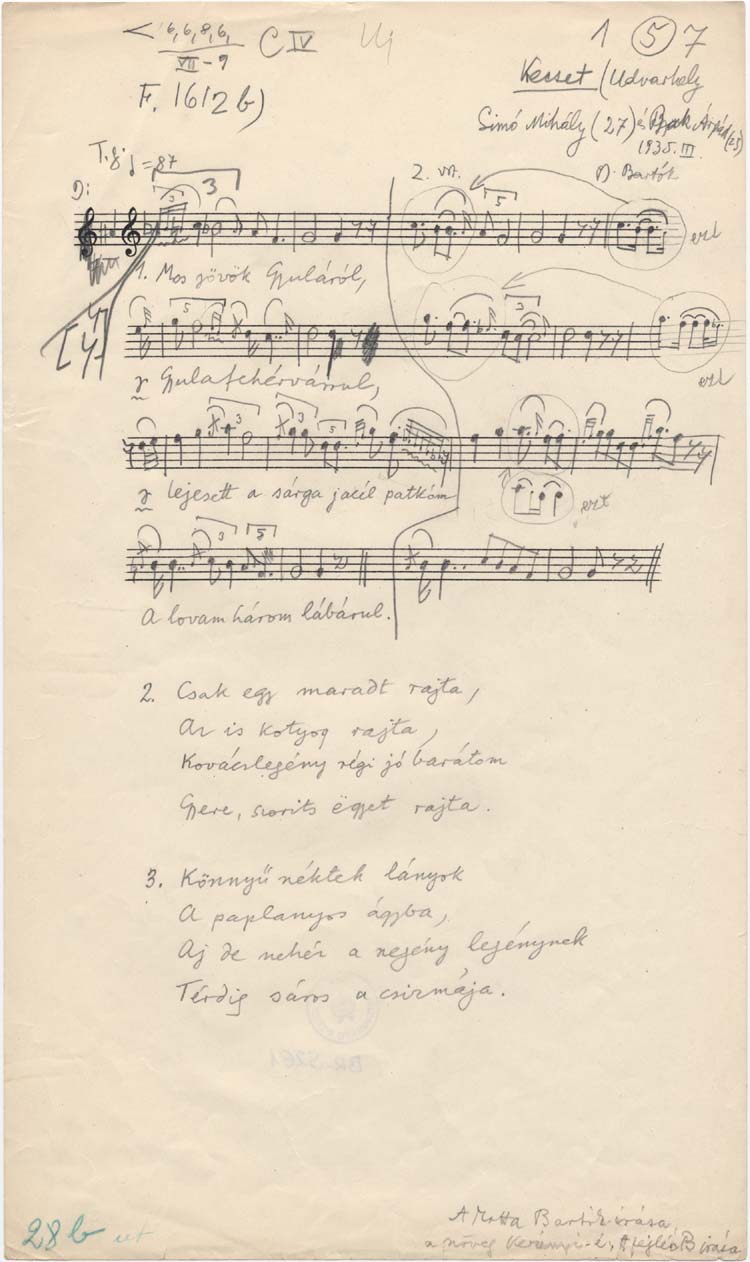 < 6, 6, 8, 6, C IV Uj 1 5 7
VII - 9
F. 1612 b)
Kecset (Udvarhely
Simó Mihály (27) és Árpád (25)
1935. III.
Bartók
♩ = 87
3
2. vsz.
5
ezt
1. Mos jövök Gyuláról,
5
3
Gyulafehérvárrul,
ezt
3
3
5
lejesett a sárga jacél patkóm
ezt
3
5
A lovam három lábárul.
2. Csak egy maradt rajta,
Az is kotyog rajta,
Kovácslegény régi jó barátom
Gyere, szorits ëggyet rajta.
3. Könnyű néktek lányok
A paplanyos ágyba,
Aj de nehéz a szegény legénynek
Térdig sáros a csizmája.
BR-5261
28 b
A kotta Bartók írása,
a szöveg Kerényi-é, A fejléc B írása